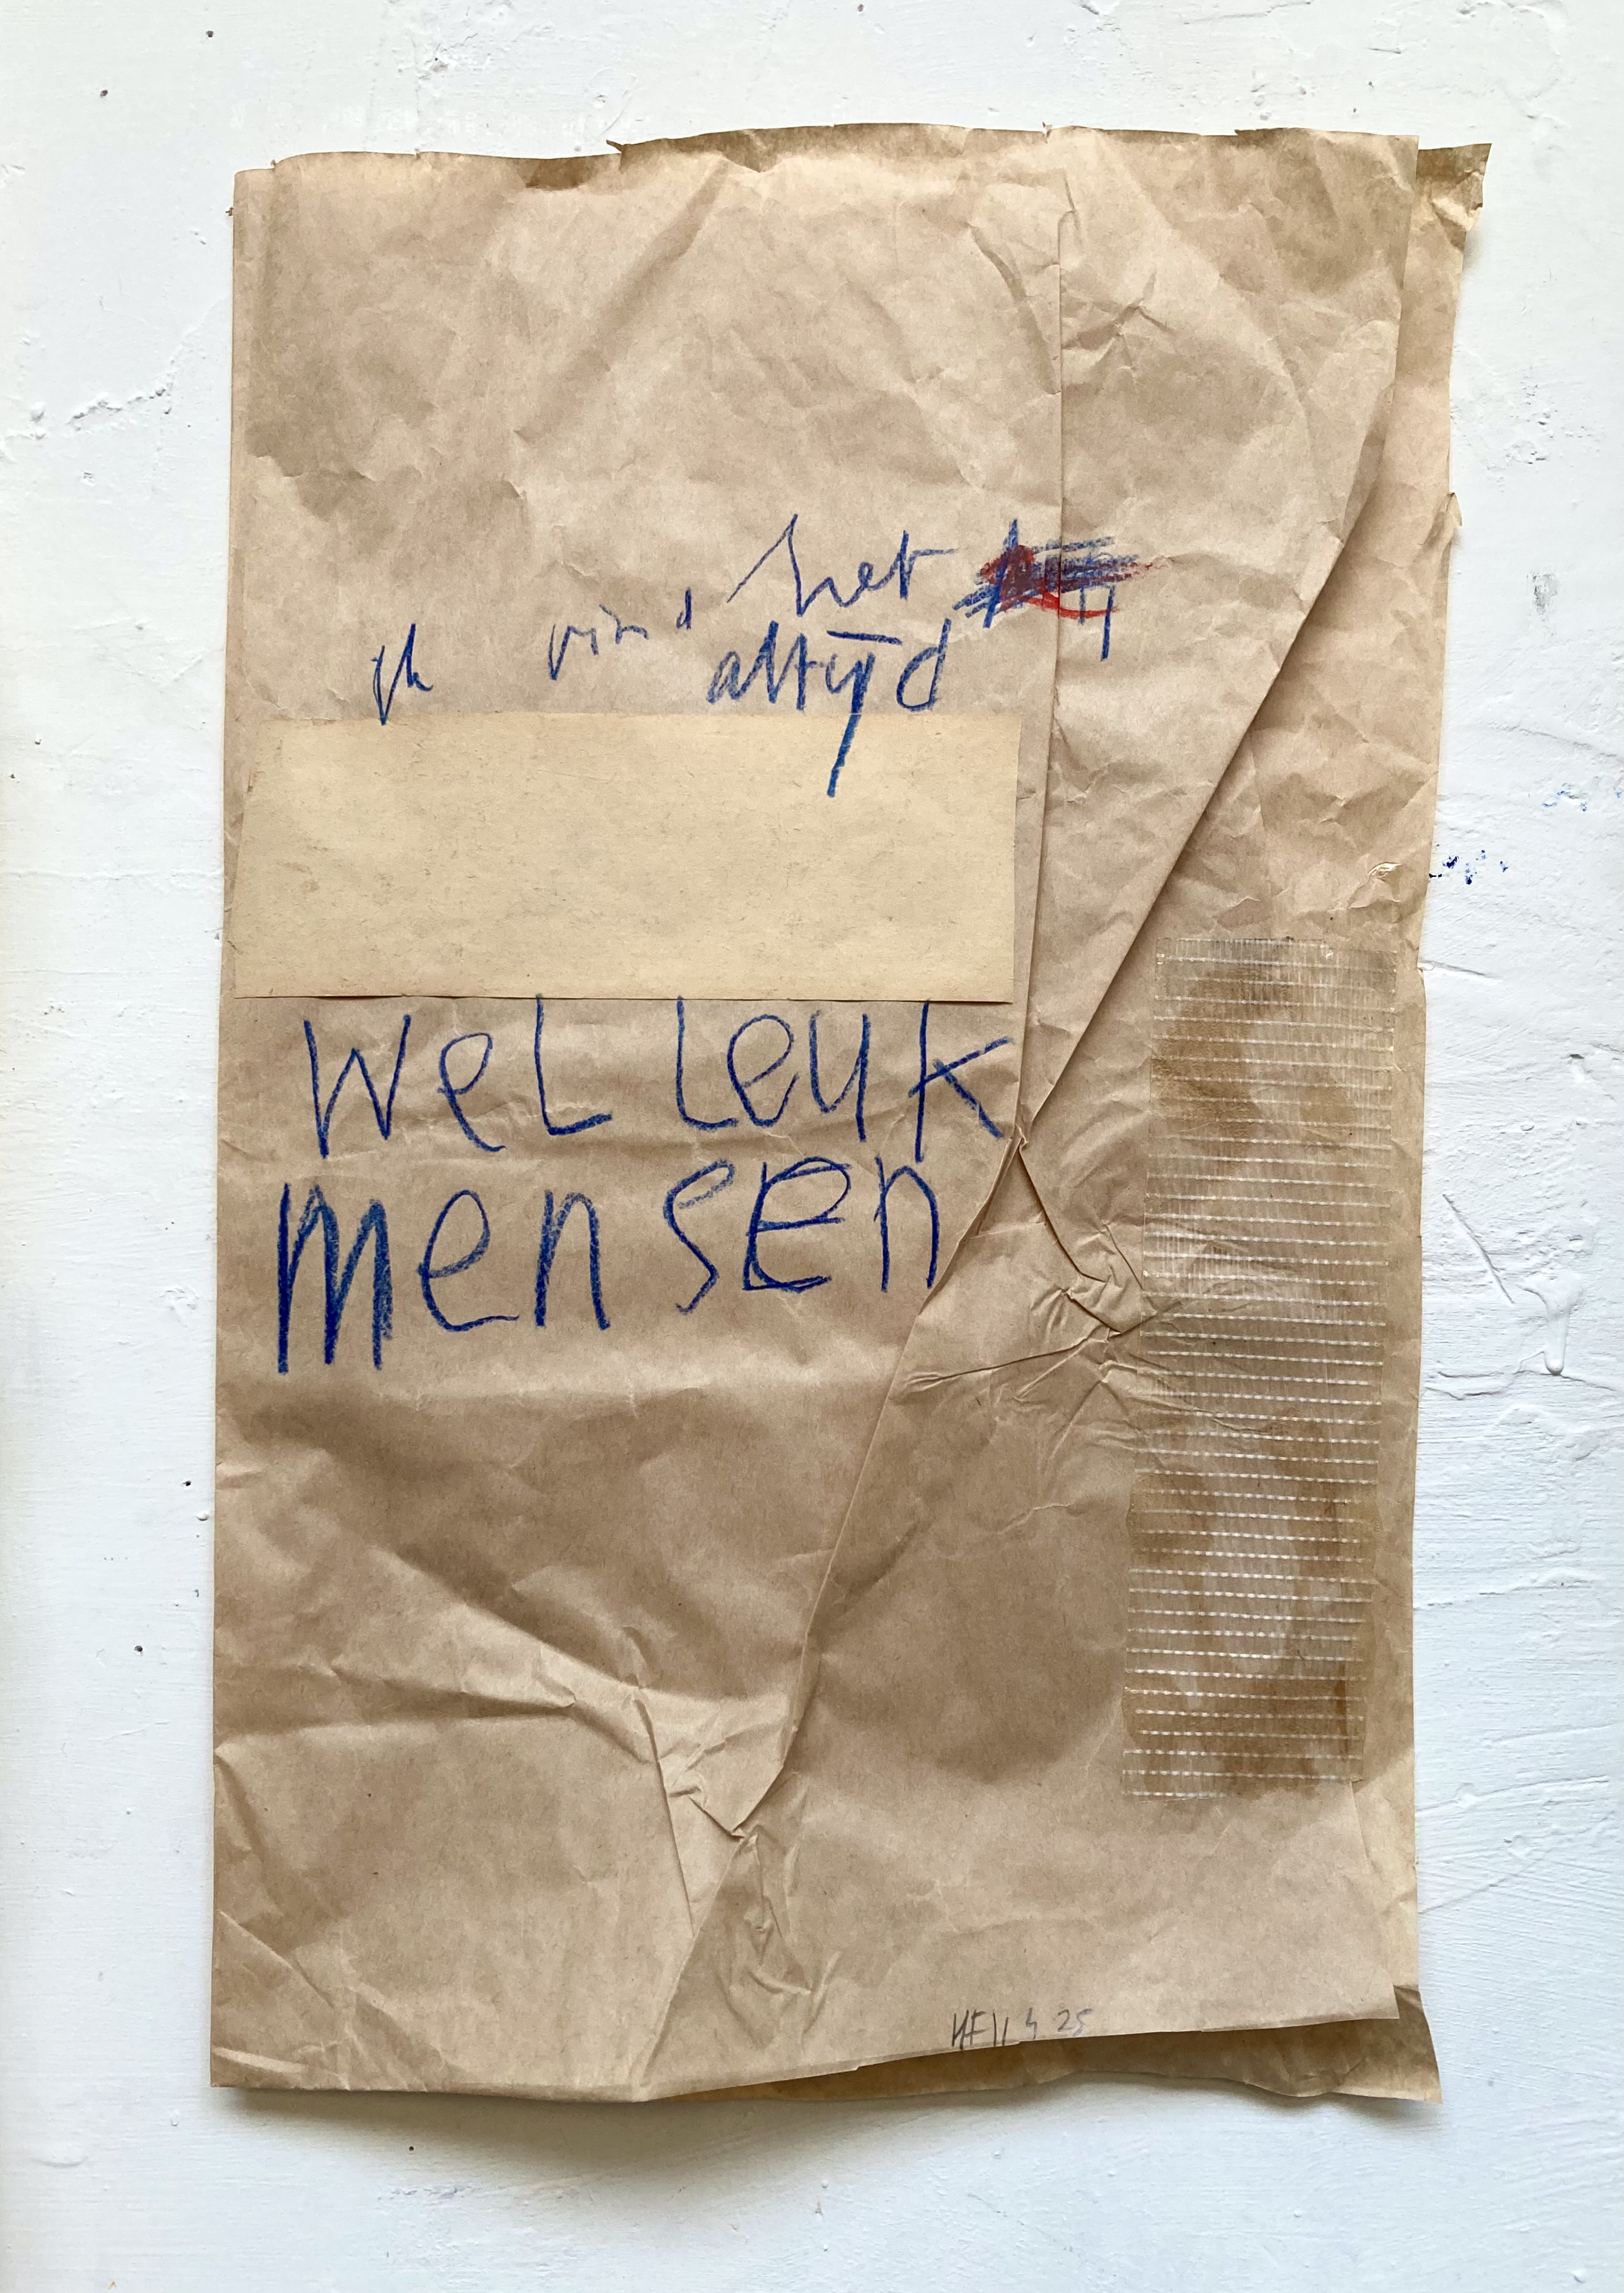 ik vind het
altijd
wel leuk
mensen